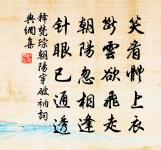 笑看體上衣
斷雲欲飛走
朝陽忽相逢
針眼已通透
釋梵琮朝陽穿破衲詞
典網集